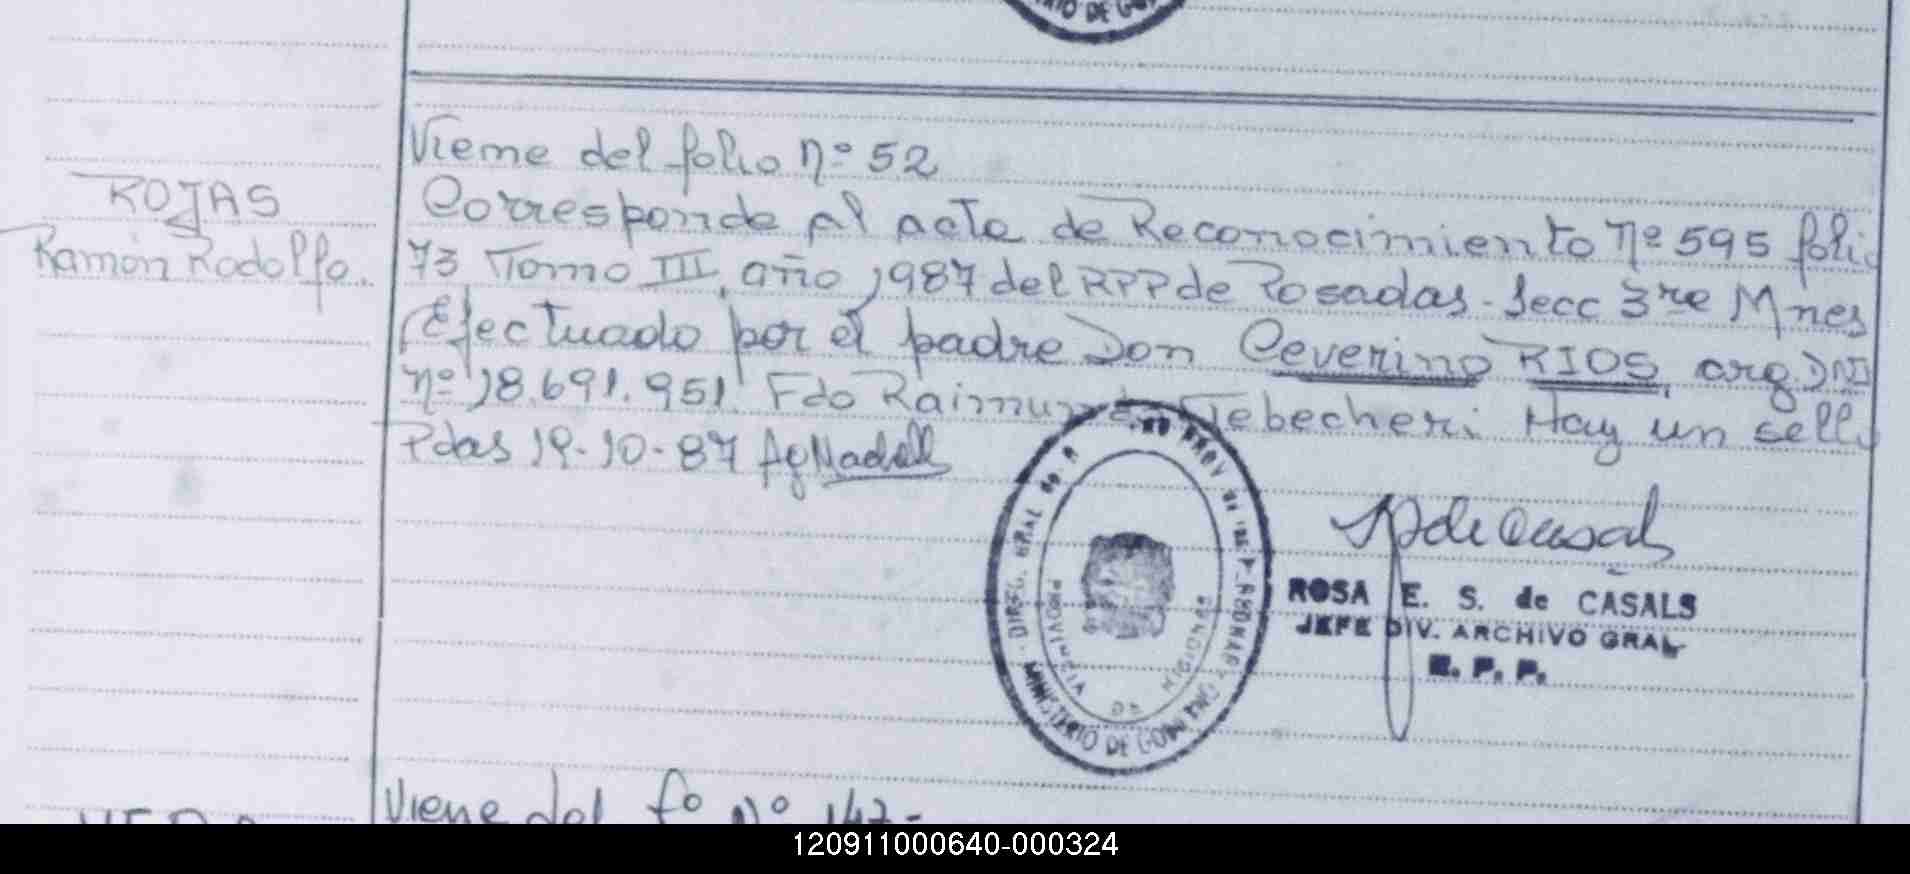 Viene del folio nº 52
ROJAS
Ramón Rodolfo.
Corresponde al acta de Reconocimiento nº 595 folio
73 Tomo III, año 1987 del RPP de Posadas - Secc 3re Mnes
Efectuado por el padre Don Ceverino RIOS, arg. DNI
nº 18.691.951. Fdo Raimundo Tebecheri Hay un sello
Pdas 19-10-87
MINISTERIO DE GOB
PROVINCIA DE MISIONES
ROSA E. S. de CASALS
JEFE DIV. ARCHIVO GRAL
R. P. P.
Viene del fo Nº 147-
120911000640-000324